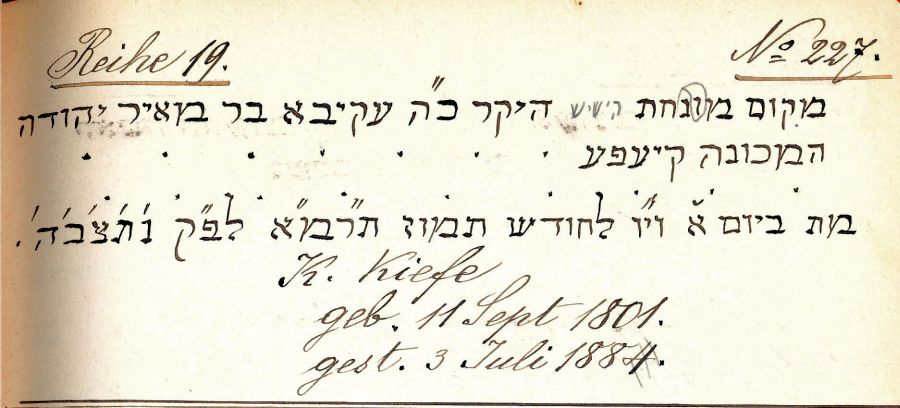 Reihe 19. No 227.
מקום מונחת הישיש היקר כ"ה עקיבא בר מאיר יהודה
המכונה קיעפע
מת ביום א' וי"ו לחודש תמוז תרמ"א לפ"ק נ'ת'צ'ב'ה'.
K. Kiefe
geb. 11 Sept 1801.
gest. 3 Juli 1884.